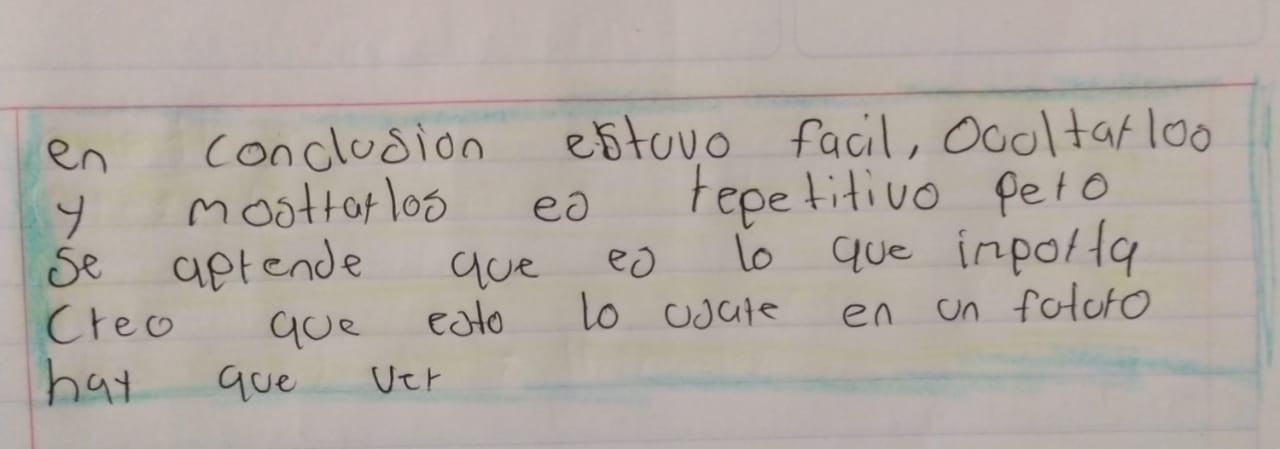 en conclusion estuvo facil, Ocultarlos
y mostrarlos es repetitivo pero
se aprende que es lo que inporta
Creo que esto lo usare en un futuro
hay que ver